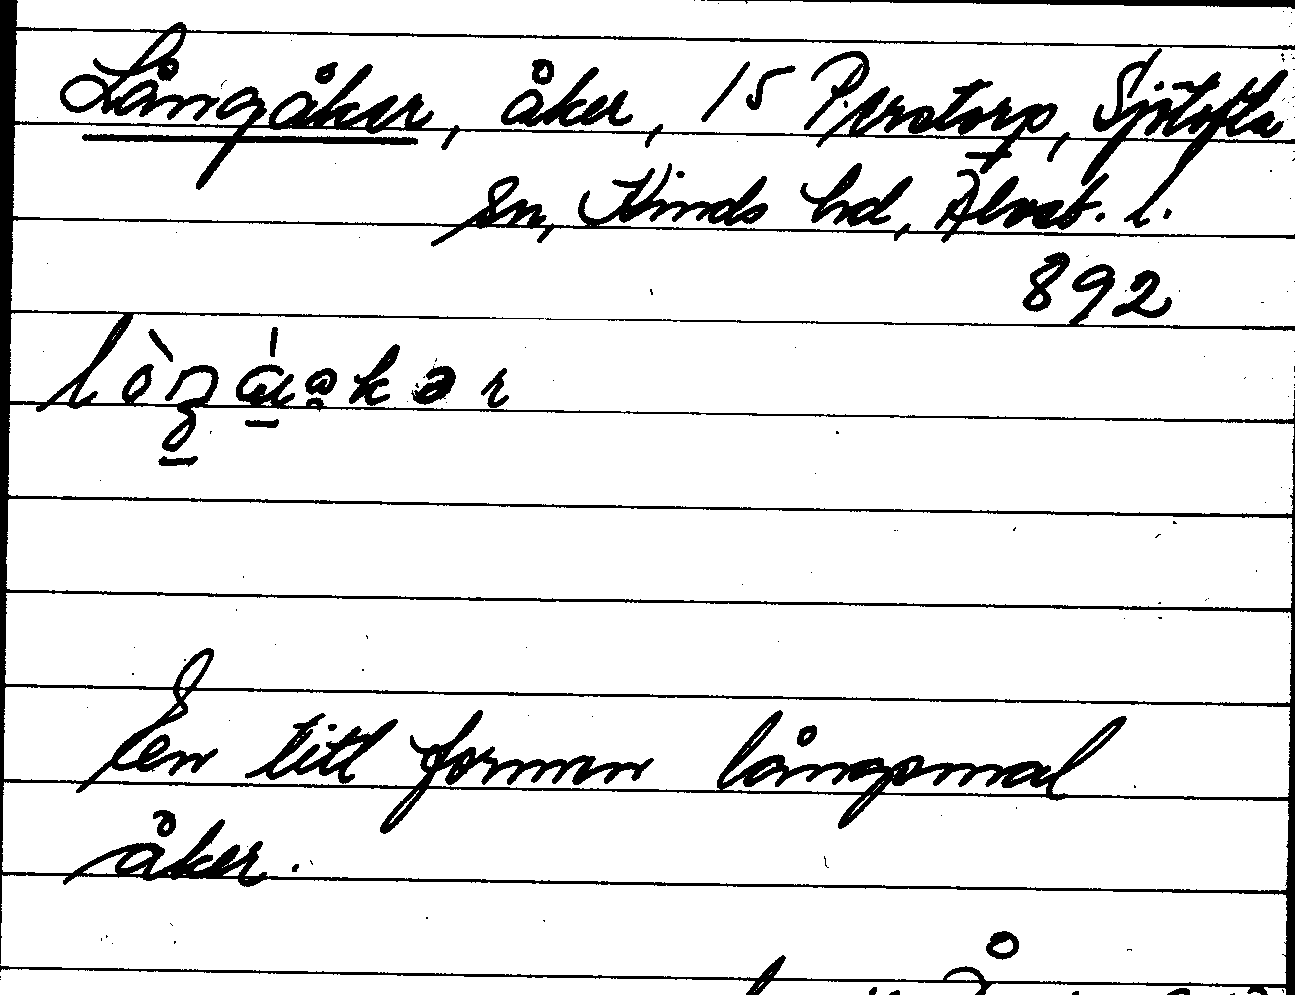 Långåker, åker, 15 P. Perstorp, Sjötofta
sn, Kinds hd, Älvsb. l.
892
En litl formen långsmal
åker.